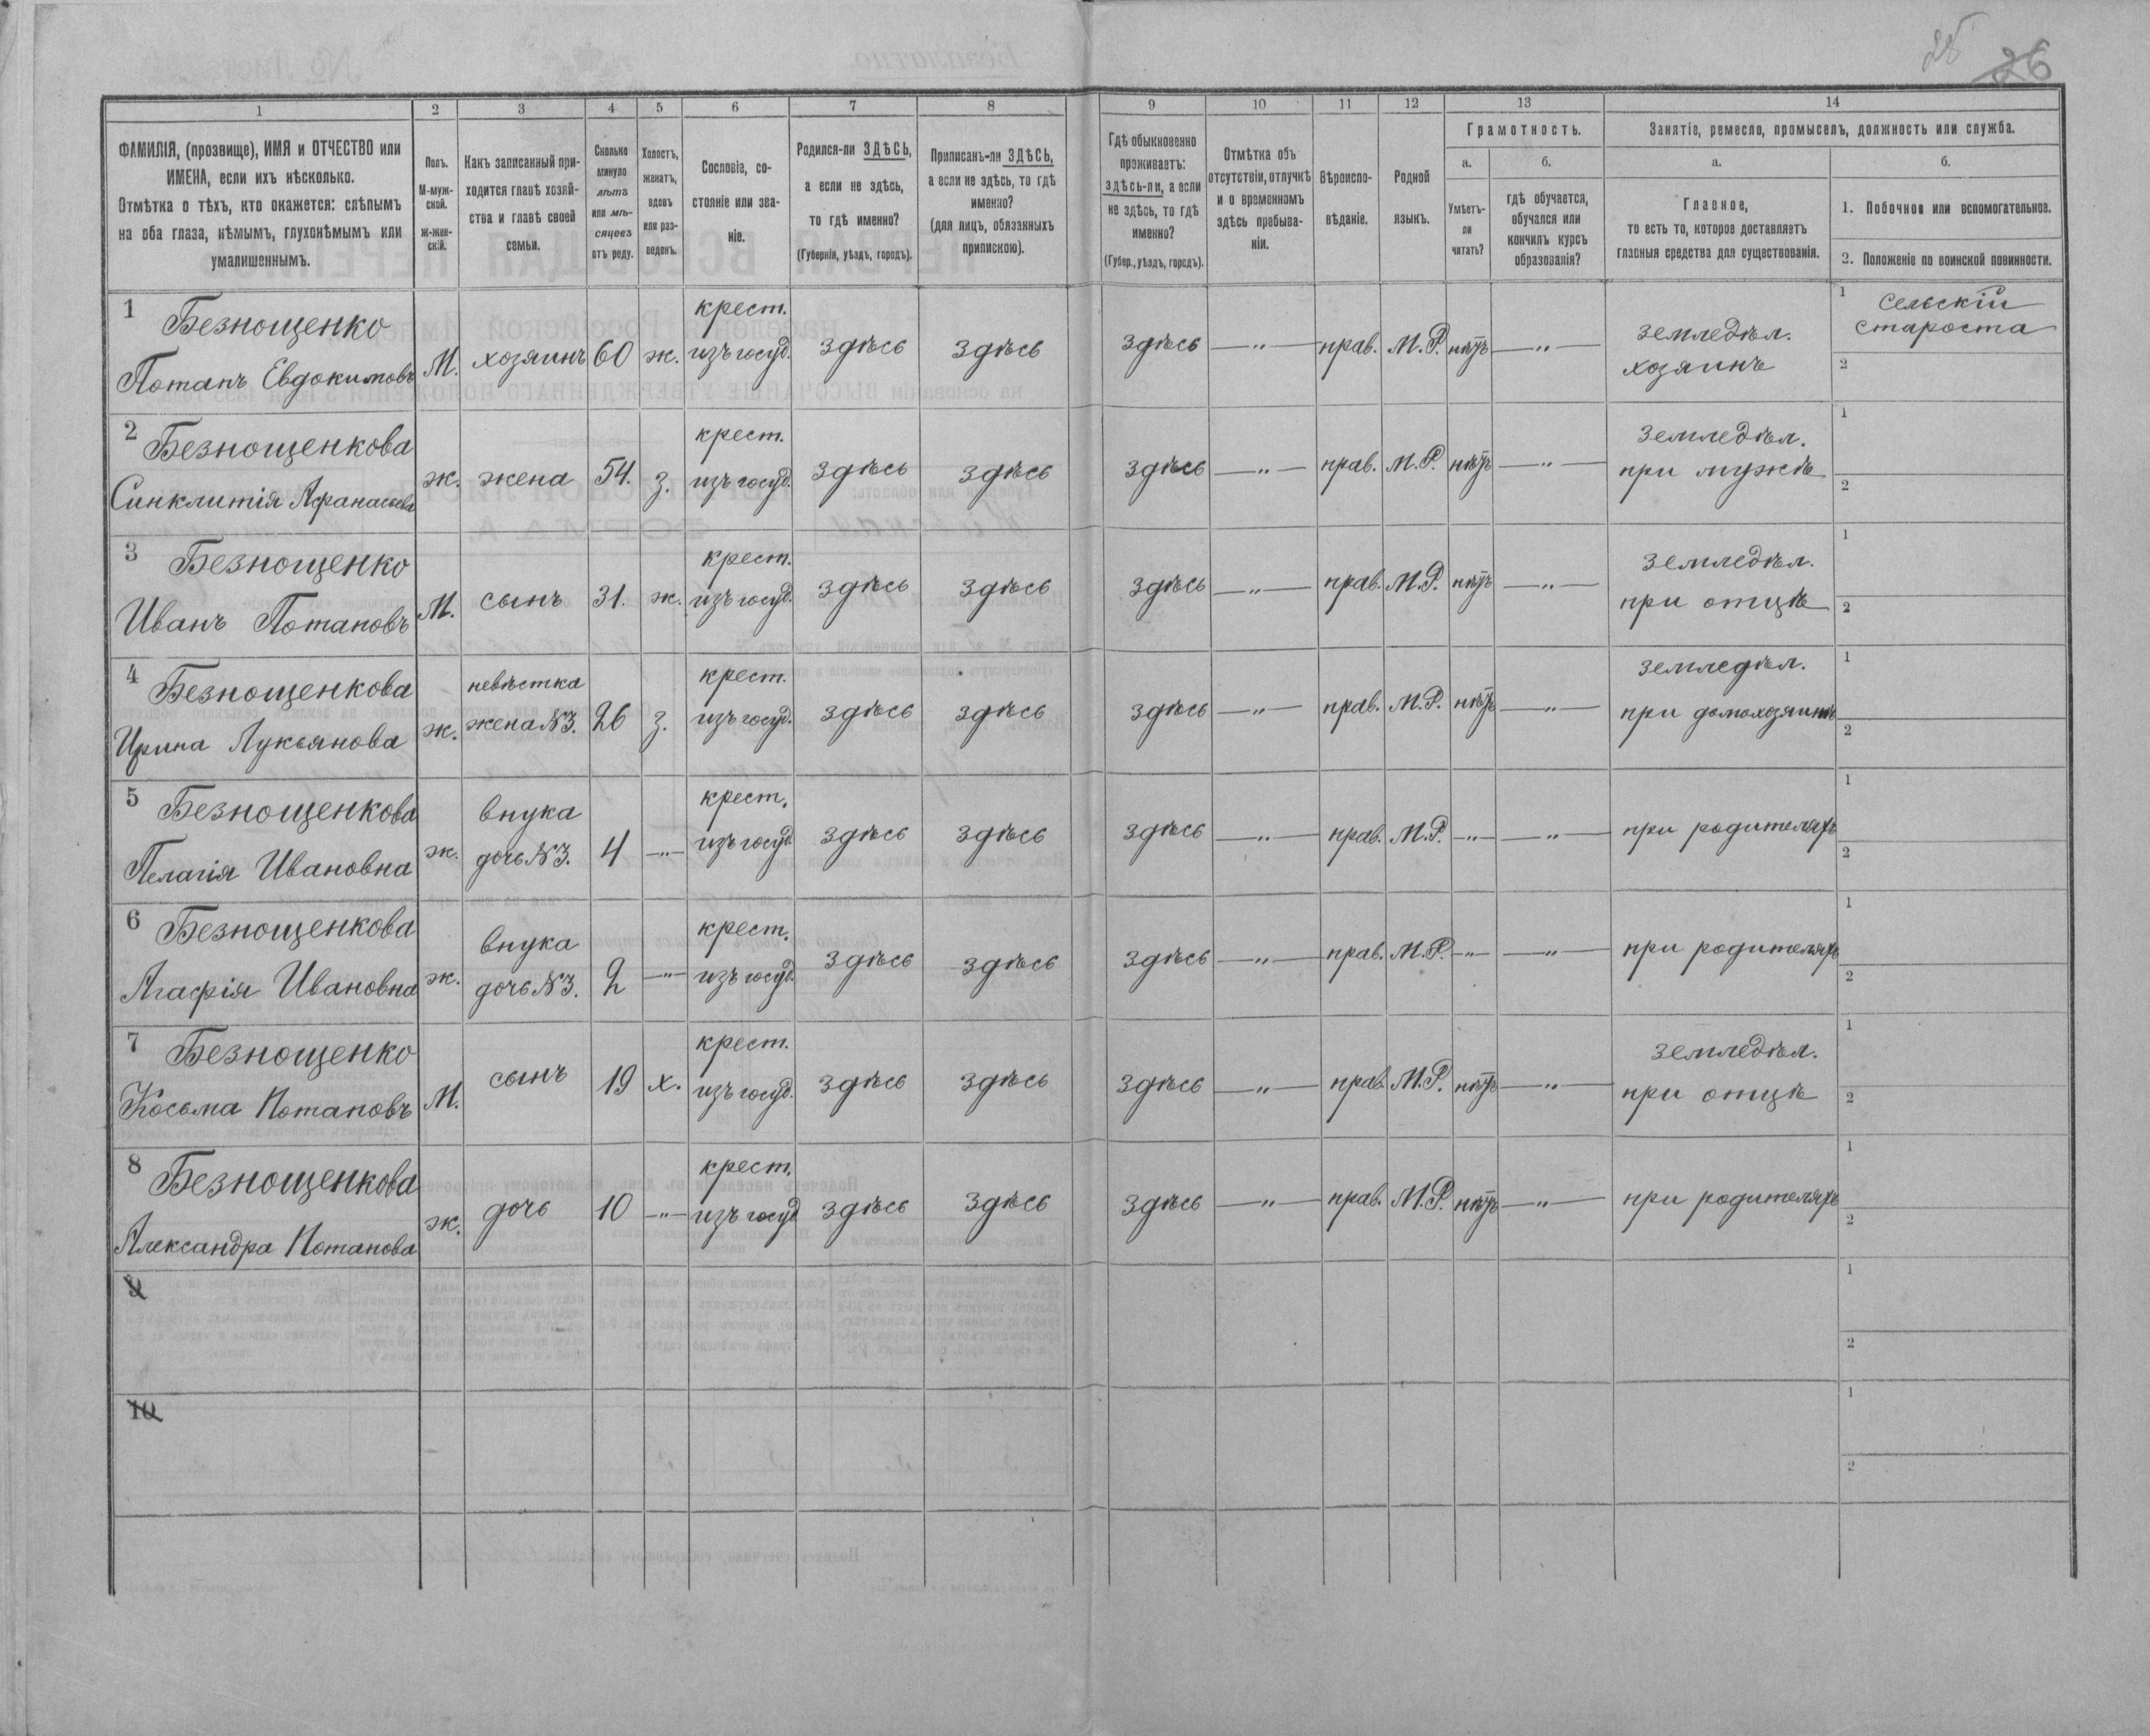 25 26
1 2 3 4 5 6 7 8 9 10 11 12 13 14
ФАМИЛІЯ, (прозвище), ИМЯ и ОТЧЕСТВО или
ИМЕНА, если ихъ нѣсколько.
Отмѣтка о тѣхъ, кто окажется: слѣпымъ
на оба глаза, нѣмымъ, глухонѣмымъ или
умалишеннымъ.
Полъ.
М-муж-
ской.
Ж-жен-
скій.
Какъ записанный при-
ходится главѣ хозяй-
ства и главѣ своей
семьи.
Сколько
минуло
лѣтъ
или мѣ-
сяцевъ
отъ роду.
Холостъ,
женатъ,
вдовъ
или раз-
веденъ.
Сословіе, со-
стояніе или зва-
ніе.
Родился-ли ЗДѢСЬ,
а если не здѣсь,
то гдѣ именно?
(Губернія, уѣздъ, городъ).
Приписанъ-ли ЗДѢСЬ,
а если не здѣсь, то гдѣ
именно?
(для лицъ, обязанныхъ
припискою).
Гдѣ обыкновенно
проживаетъ:
здѣсь-ли, а если
не здѣсь, то гдѣ
именно?
(Губер., уѣздъ, городъ).
Отмѣтка объ
отсутствіи, отлучкѣ
и о временномъ
здѣсь пребыва-
ніи.
Вѣроиспо-
вѣданіе.
Родной
языкъ.
Грамотность.
а.
Умѣетъ-
ли
читать?
б.
гдѣ обучается,
обучался или
кончилъ курсъ
образованія?
Занятіе, ремесло, промыселъ, должность или служба.
а.
Главное,
то есть то, которое доставляетъ
главныя средства для существованія.
б.
1. Побочное или вспомогательное.
2. Положеніе по воинской повинности.
1 Безнощенко
Потапъ Евдокимовъ
М. хозяинъ 60 ж.
крест.
изъ госуд.
здѣсь здѣсь здѣсь — „ — прав. М.Р. нѣтъ — „ —
земледѣл.
хозяинъ
1 сельскій
староста
2
2 Безнощенкова
Синклитія Афанасьева
ж. жена 54. з.
крест.
изъ госуд.
здѣсь здѣсь здѣсь — „ — прав. М.Р. нѣтъ — „ —
земледѣл.
при мужѣ
1
2
3 Безнощенко
Иванъ Потаповъ
М. сынъ 31. ж.
крест.
изъ госуд.
здѣсь здѣсь здѣсь — „ — прав. М.Р. нѣтъ — „ —
земледѣл.
при отцѣ
1
2
4 Безнощенкова
Ирина Лукьянова
ж.
невѣстка
жена №3. 26 з.
крест.
изъ госуд.
здѣсь здѣсь здѣсь — „ — прав. М.Р. нѣтъ — „ —
земледѣл.
при домохозяинѣ
1
2
5 Безнощенкова
Пелагія Ивановна
ж.
внука
дочь №3. 4 — „ —
крест.
изъ госуд.
здѣсь здѣсь здѣсь — „ — прав. М.Р. — „ — — „ —
при родителяхъ
1
2
6 Безнощенкова
Агафія Ивановна
ж.
внука
дочь №3. 2 — „ —
крест.
изъ госуд.
здѣсь здѣсь здѣсь — „ — прав. М.Р. — „ — — „ —
при родителяхъ
1
2
7 Безнощенко
Косьма Потаповъ
М. сынъ 19 х.
крест.
изъ госуд.
здѣсь здѣсь здѣсь — „ — прав. М.Р. нѣтъ — „ —
земледѣл.
при отцѣ
1
2
8 Безнощенкова
Александра Потапова
ж. дочь 10 — „ —
крест.
изъ госуд
здѣсь здѣсь здѣсь — „ — прав. М.Р. нѣтъ — „ —
при родителяхъ
1
2
9
1
2
10
1
2